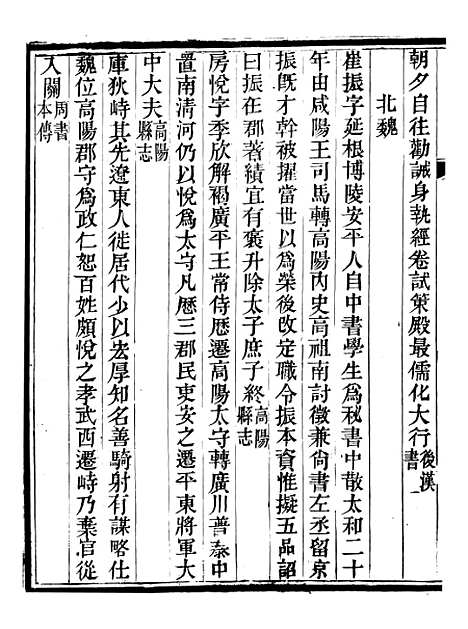 朝夕自往勸誡身執經卷試策殿最儒化大行後漢書
北魏
崔振字延根博陵安平人自中書學生爲秘書中散太和二十
年由咸陽王司馬轉高陽內史高祖南討徵兼尙書左丞留京
振旣才幹被擢當世以爲榮後改定職令振本資惟擬五品詔
曰振在郡著績宜有褒升除太子庶子終高陽縣志
房悅字季欣解褐廣平王常侍歷遷高陽太守轉廣川普泰中
置南清河仍以悅爲太守凡歷三郡民吏安之遷平東將軍大
中大夫高陽縣志
庫狄峙其先遼東人徙居代少以去厚知名善騎射有謀略仕
魏位高陽郡守爲政仁恕百姓頗悅之孝武西遷峙乃棄官從
入關周書本傳